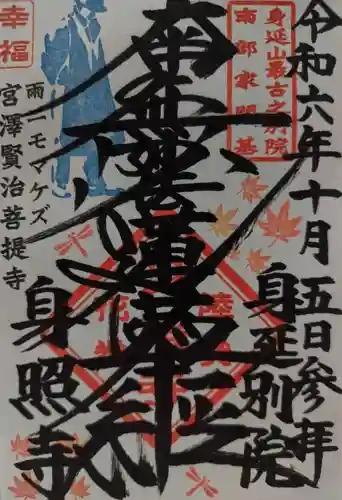 令和六年十月五日参拝
身延山最古之別院
南部家開基
身延別院
南無妙法蓮華経
幸福
雨ニモマケズ
宮澤賢治菩提寺
身照寺